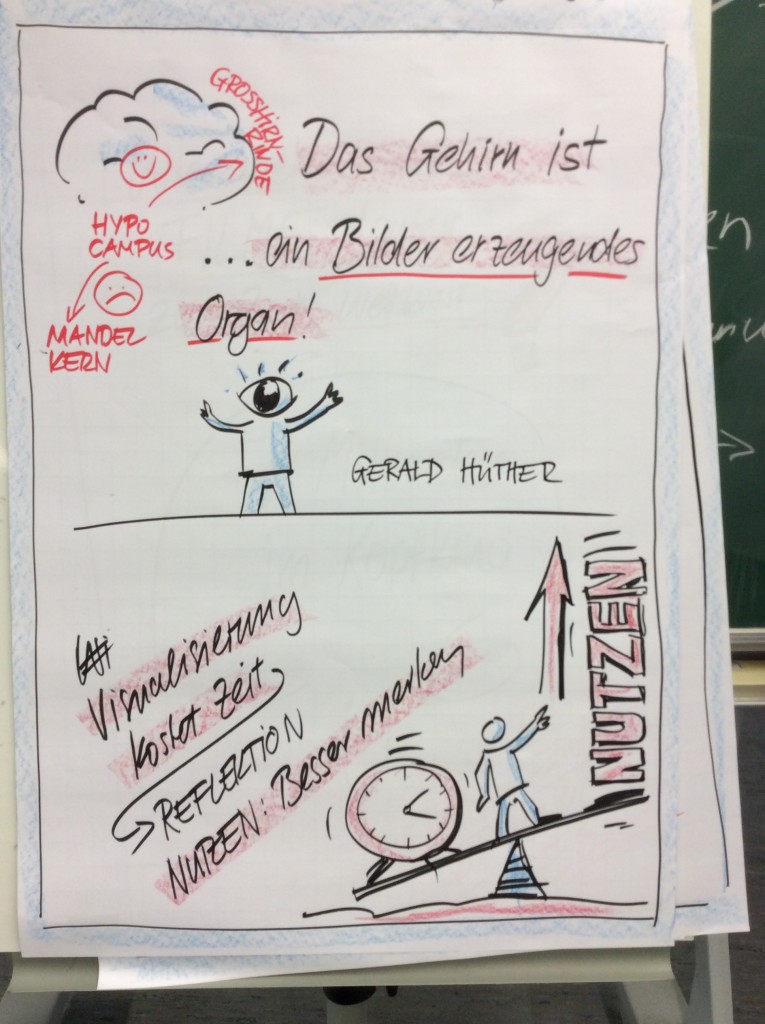 GROSSHIRN-
RINDE
Das Gehirn ist
HYPO
CAMPUS
... ein Bilder erzeugendes
Organ!
MANDEL
KERN
GERALD HÜTHER
NUTZEN
Visualisierung
kostet Zeit
REFLEKTION
NUTZEN: Besser merken